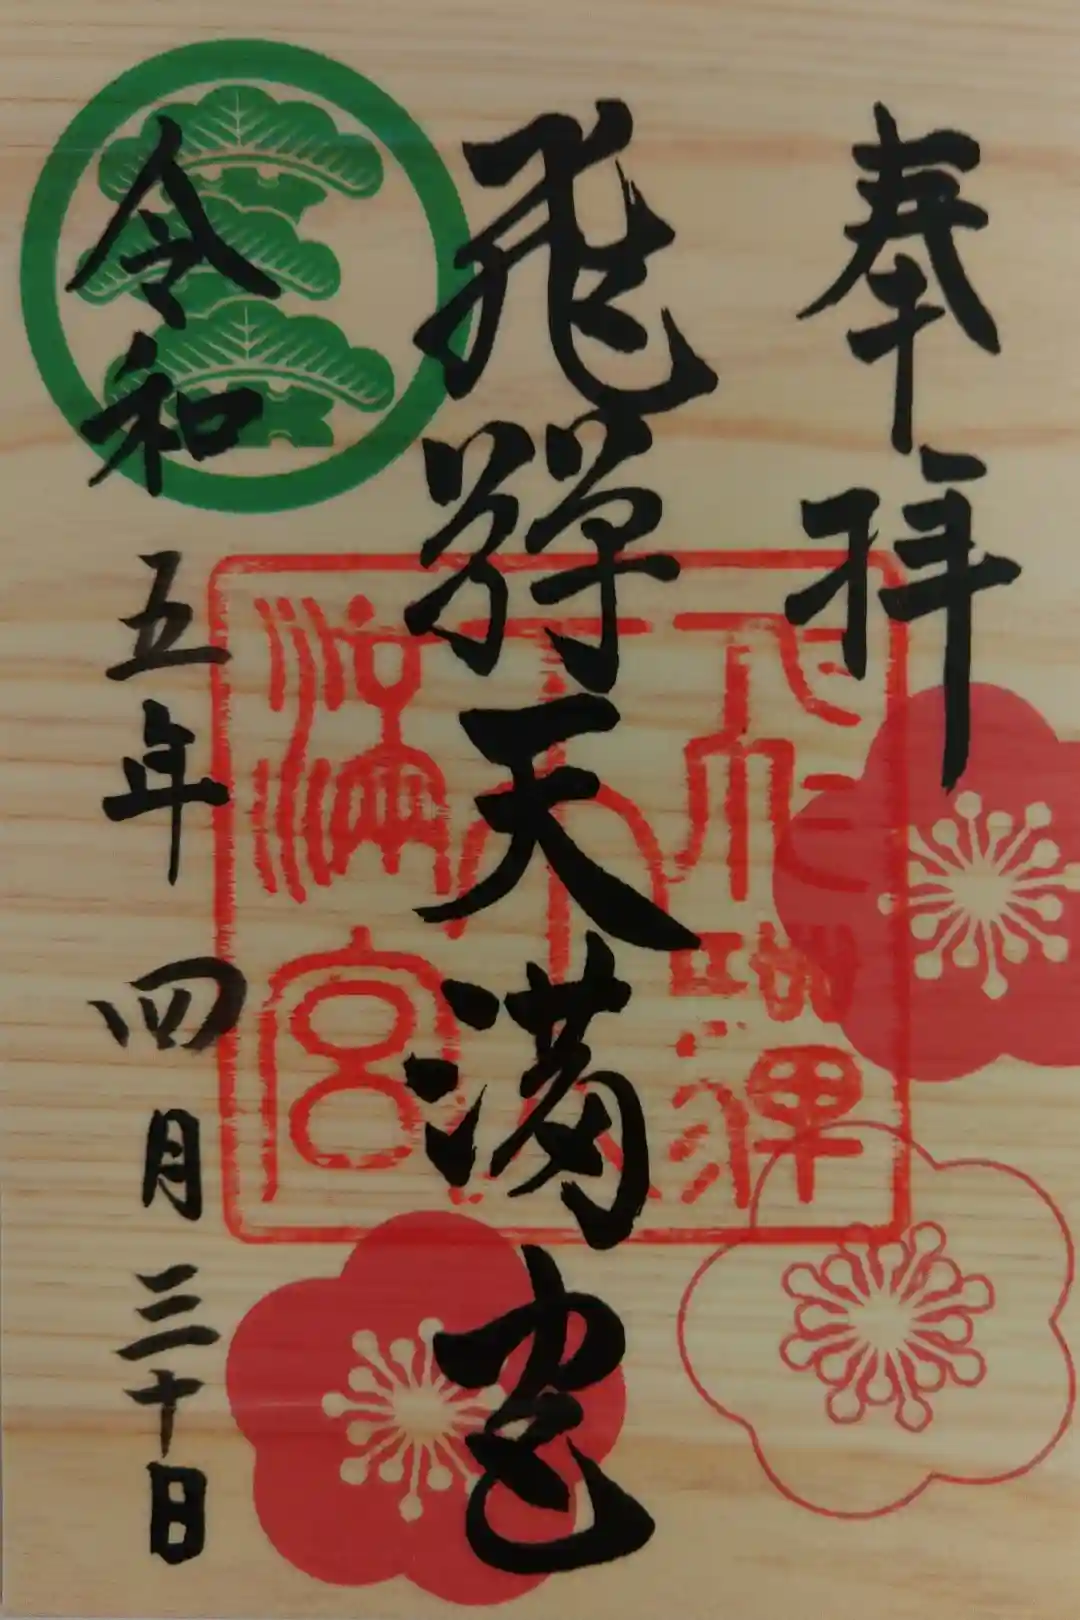 奉拝
飛騨天満宮
令和五年四月三十日
飛騨
天
満宮